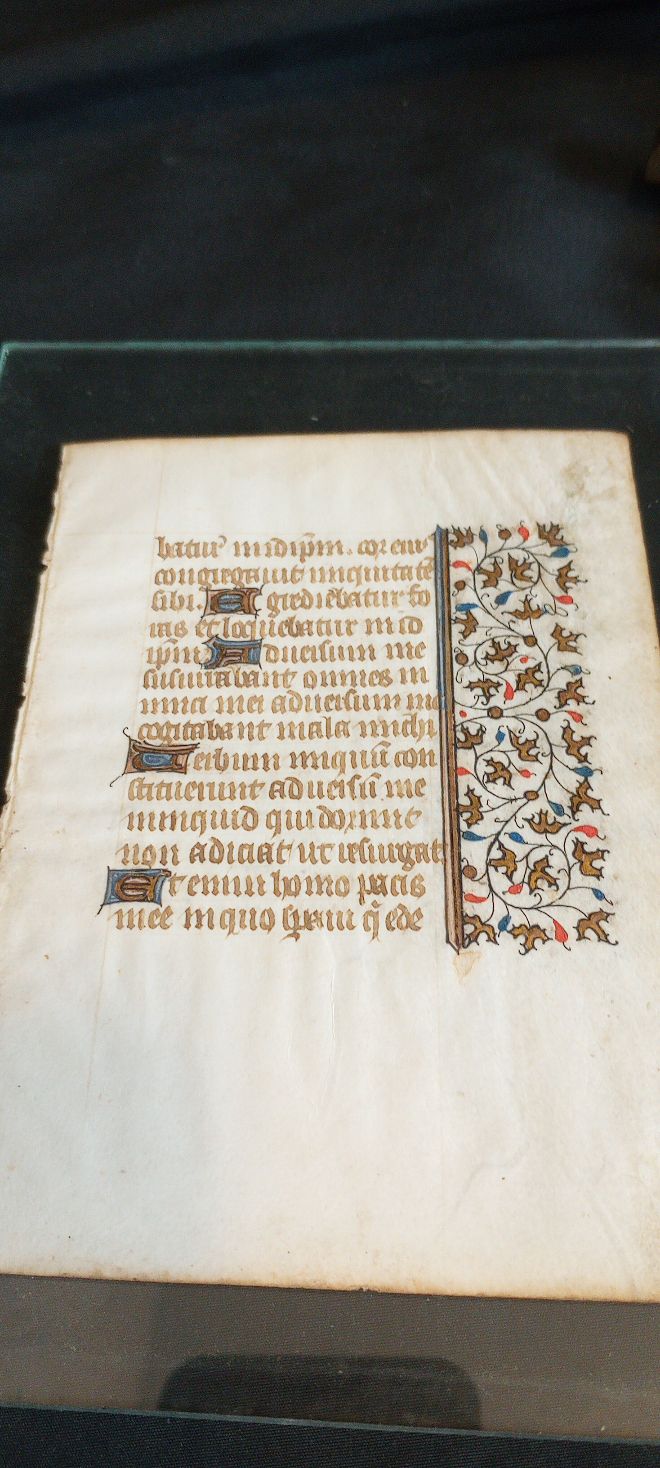 batur in idip̄m. cor eius
congregauit iniquitatē
sibi. Egrediebatur fo
ras et loquebatur in id
ip̄m Aduersum me
susurrabant omnes in
imici mei aduersum me
cogitabant mala michi
Uerbum iniquū con
stituerunt aduersū me
nunquid qui dormit
non adiciat ut resurgat
Etenim homo pacis
mee in quo speraui q̄ ede